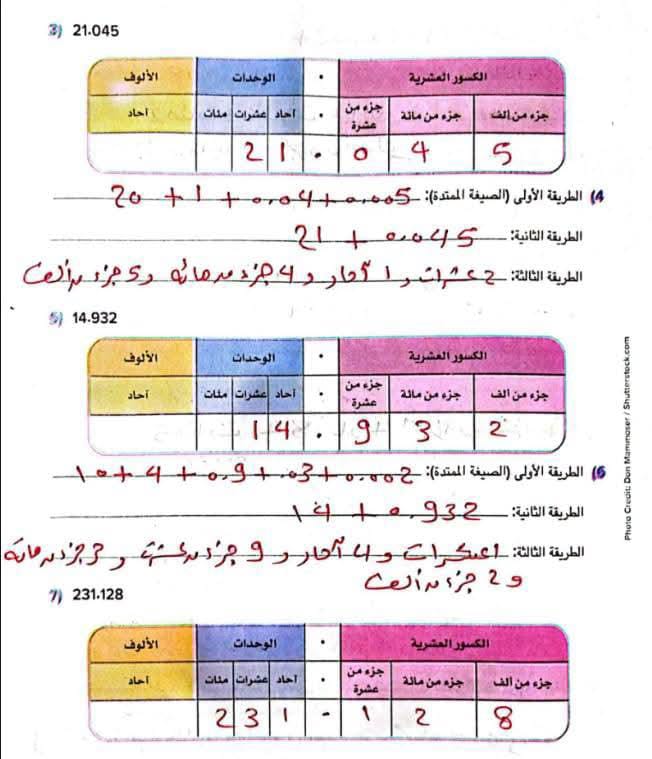 3) 21.045
الألوف الوحدات . الكسور العشرية
آحاد مئات عشرات آحاد . جزء من عشرة جزء من مائة جزء من ألف
2 1 . 0 4 5
4) الطريقة الأولى (الصيغة الممتدة): 20 + 1 + 0.04 + 0.005
الطريقة الثانية: 21 + 0.045
الطريقة الثالثة: 2 عشرات و 1 آحاد و 4 جزء من مائة و 5 جزء من ألف
5) 14.932
الألوف الوحدات . الكسور العشرية
آحاد مئات عشرات آحاد . جزء من عشرة جزء من مائة جزء من ألف
1 4 . 9 3 2
6) الطريقة الأولى (الصيغة الممتدة): 10 + 4 + 0.9 + .03 + 0.002
الطريقة الثانية: 14 + 0.932
الطريقة الثالثة: 1 عشرات و 4 آحاد و 9 جزء من عشرة و 3 جزء من مائة
و 2 جزء من ألف
7) 231.128
الألوف الوحدات . الكسور العشرية
آحاد مئات عشرات آحاد . جزء من عشرة جزء من مائة جزء من ألف
2 3 1 . 1 2 8
Photo Credit: Don Mammoser / Shutterstock.com